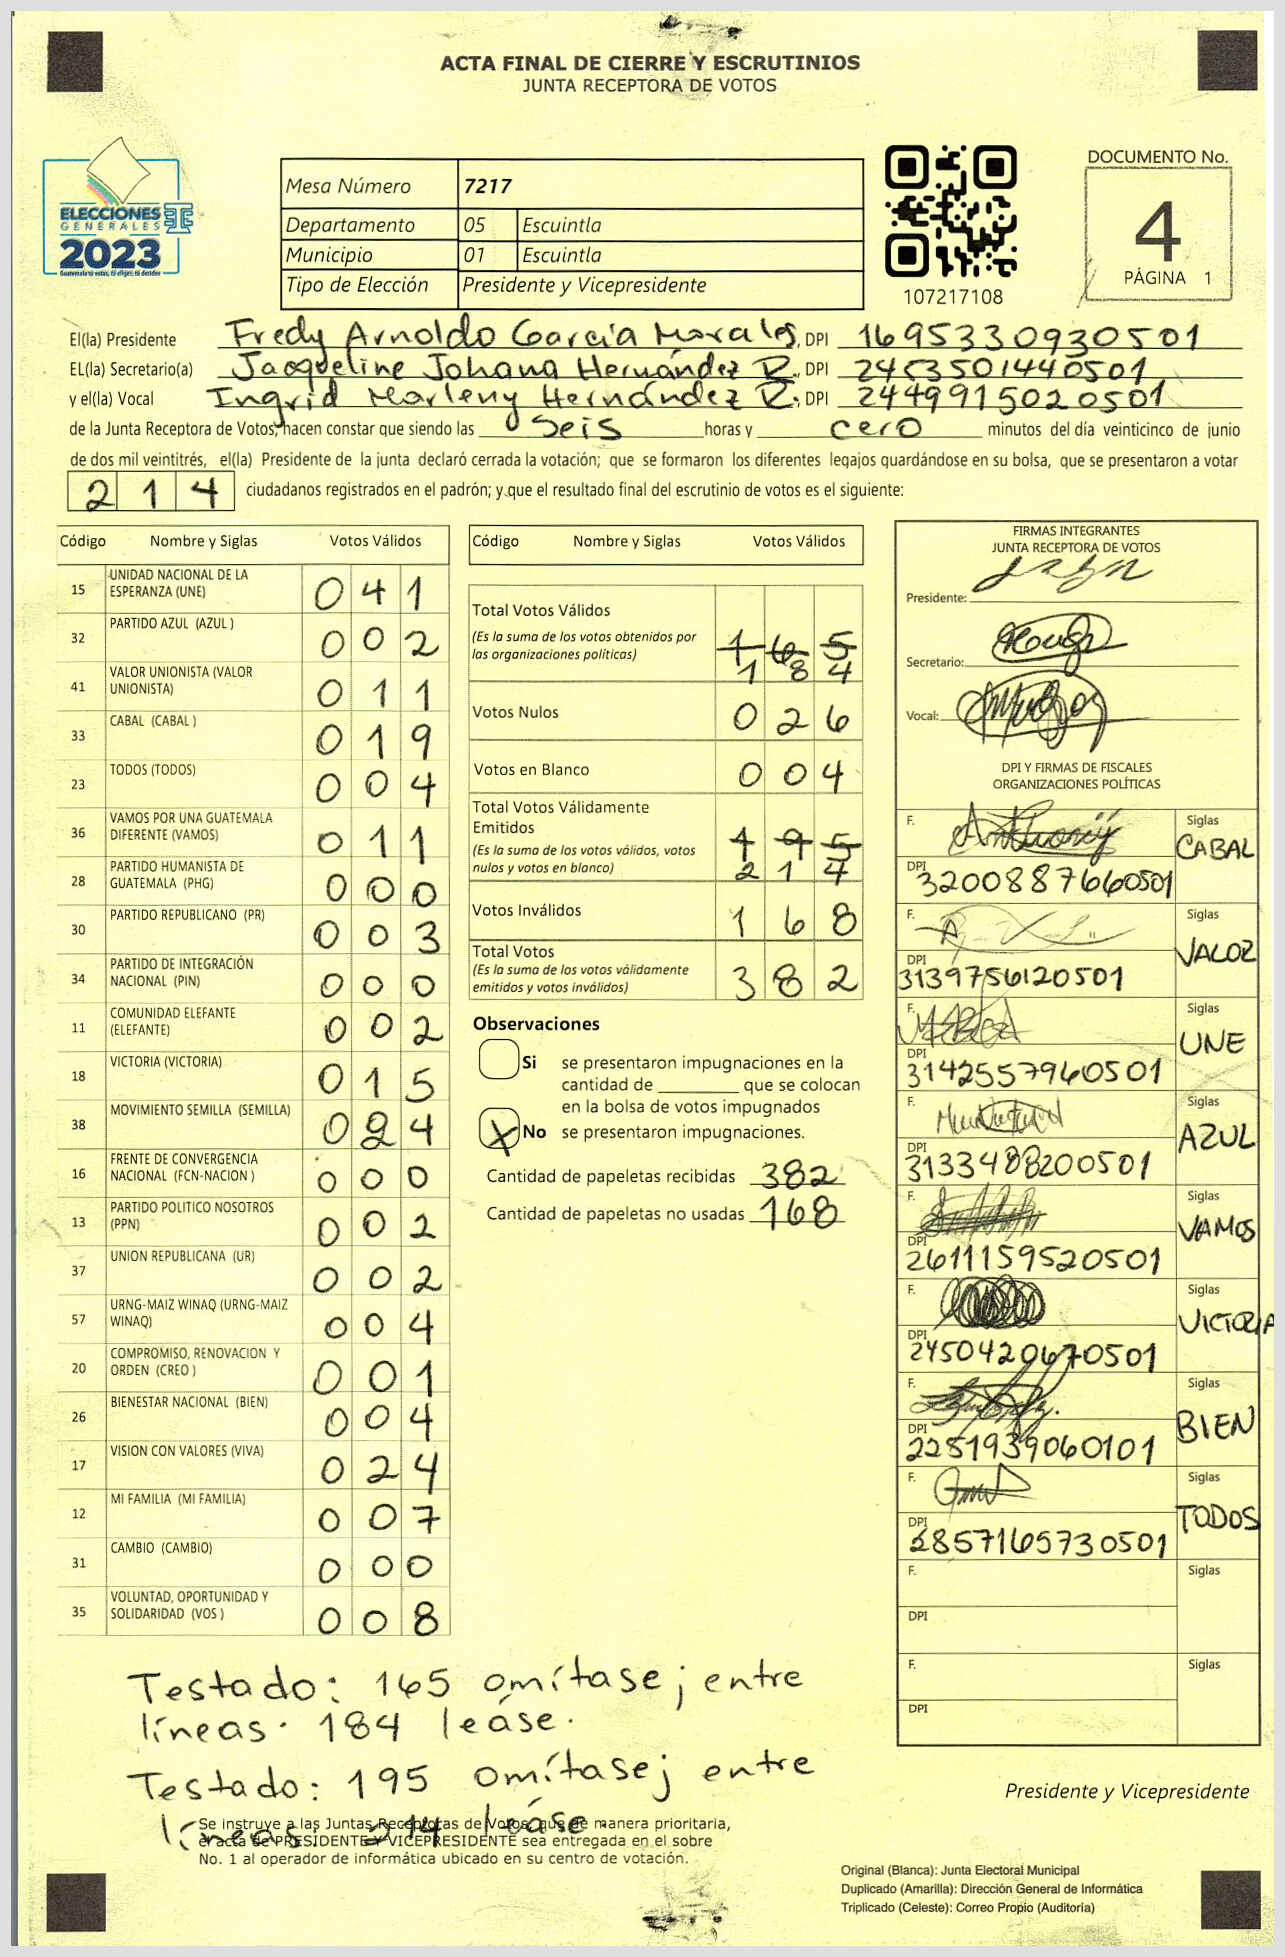 ACTA FINAL DE CIERRE Y ESCRUTINIOS
JUNTA RECEPTORA DE VOTOS
ELECCIONES
GENERALES
2023
Guatemala tú votas, tú eliges, tú decides
Mesa Número 7217
Departamento 05 Escuintla
Municipio 01 Escuintla
Tipo de Elección Presidente y Vicepresidente
107217108
DOCUMENTO No.
4
PÁGINA 1
El(la) Presidente Fredy Arnoldo García Morales, DPI 1695330930501
EL(la) Secretario(a) Jacqueline Johana Hernández R., DPI 2453501440501
y el(la) Vocal Ingrid Marleny Hernández R., DPI 2449915020501
de la Junta Receptora de Votos, hacen constar que siendo las seis horas y cero minutos del día veinticinco de junio
de dos mil veintitrés, el(la) Presidente de la junta declaró cerrada la votación; que se formaron los diferentes legajos guardándose en su bolsa, que se presentaron a votar
214 ciudadanos registrados en el padrón; y que el resultado final del escrutinio de votos es el siguiente:
Código Nombre y Siglas Votos Válidos
15 UNIDAD NACIONAL DE LA ESPERANZA (UNE) 041
32 PARTIDO AZUL (AZUL ) 002
41 VALOR UNIONISTA (VALOR UNIONISTA) 011
33 CABAL (CABAL ) 019
23 TODOS (TODOS) 004
36 VAMOS POR UNA GUATEMALA DIFERENTE (VAMOS) 011
28 PARTIDO HUMANISTA DE GUATEMALA (PHG) 000
30 PARTIDO REPUBLICANO (PR) 003
34 PARTIDO DE INTEGRACIÓN NACIONAL (PIN) 000
11 COMUNIDAD ELEFANTE (ELEFANTE) 002
18 VICTORIA (VICTORIA) 015
38 MOVIMIENTO SEMILLA (SEMILLA) 024
16 FRENTE DE CONVERGENCIA NACIONAL (FCN-NACION ) 000
13 PARTIDO POLITICO NOSOTROS (PPN) 002
37 UNION REPUBLICANA (UR) 002
57 URNG-MAIZ WINAQ (URNG-MAIZ WINAQ) 004
20 COMPROMISO, RENOVACION Y ORDEN (CREO ) 001
26 BIENESTAR NACIONAL (BIEN) 004
17 VISION CON VALORES (VIVA) 024
12 MI FAMILIA (MI FAMILIA) 007
31 CAMBIO (CAMBIO) 000
35 VOLUNTAD, OPORTUNIDAD Y SOLIDARIDAD (VOS ) 008
Código Nombre y Siglas Votos Válidos
Total Votos Válidos
(Es la suma de los votos obtenidos por
las organizaciones políticas)
165
184
Votos Nulos 026
Votos en Blanco 004
Total Votos Válidamente
Emitidos
(Es la suma de los votos válidos, votos
nulos y votos en blanco)
195
214
Votos Inválidos 168
Total Votos
(Es la suma de los votos válidamente
emitidos y votos inválidos) 382
Observaciones
Si se presentaron impugnaciones en la
cantidad de ________ que se colocan
en la bolsa de votos impugnados
X No se presentaron impugnaciones.
Cantidad de papeletas recibidas 382
Cantidad de papeletas no usadas 168
FIRMAS INTEGRANTES
JUNTA RECEPTORA DE VOTOS
Presidente:
Secretario:
Vocal:
DPI Y FIRMAS DE FISCALES
ORGANIZACIONES POLÍTICAS
F. Siglas CABAL
DPI 3200887660501
F. Siglas VALOZ
DPI 3139756120501
F. Siglas UNE
DPI 3142557960501
F. Siglas AZUL
DPI 3133488200501
F. Siglas VAMOS
DPI 2611159520501
F. Siglas VICTORIA
DPI 2450420670501
F. Siglas BIEN
DPI 2251939060101
F. Siglas TODOS
DPI 2857165730501
F. Siglas
DPI
F. Siglas
DPI
Testado: 165 omítase; entre
líneas. 184 leáse.
Testado: 195 omítase; entre
líneas 214 leáse
Se instruye a las Juntas Receptoras de Votos, que de manera prioritaria,
el acta de PRESIDENTE Y VICEPRESIDENTE sea entregada en el sobre
No. 1 al operador de informática ubicado en su centro de votación.
Presidente y Vicepresidente
Original (Blanca): Junta Electoral Municipal
Duplicado (Amarilla): Dirección General de Informática
Triplicado (Celeste): Correo Propio (Auditoría)